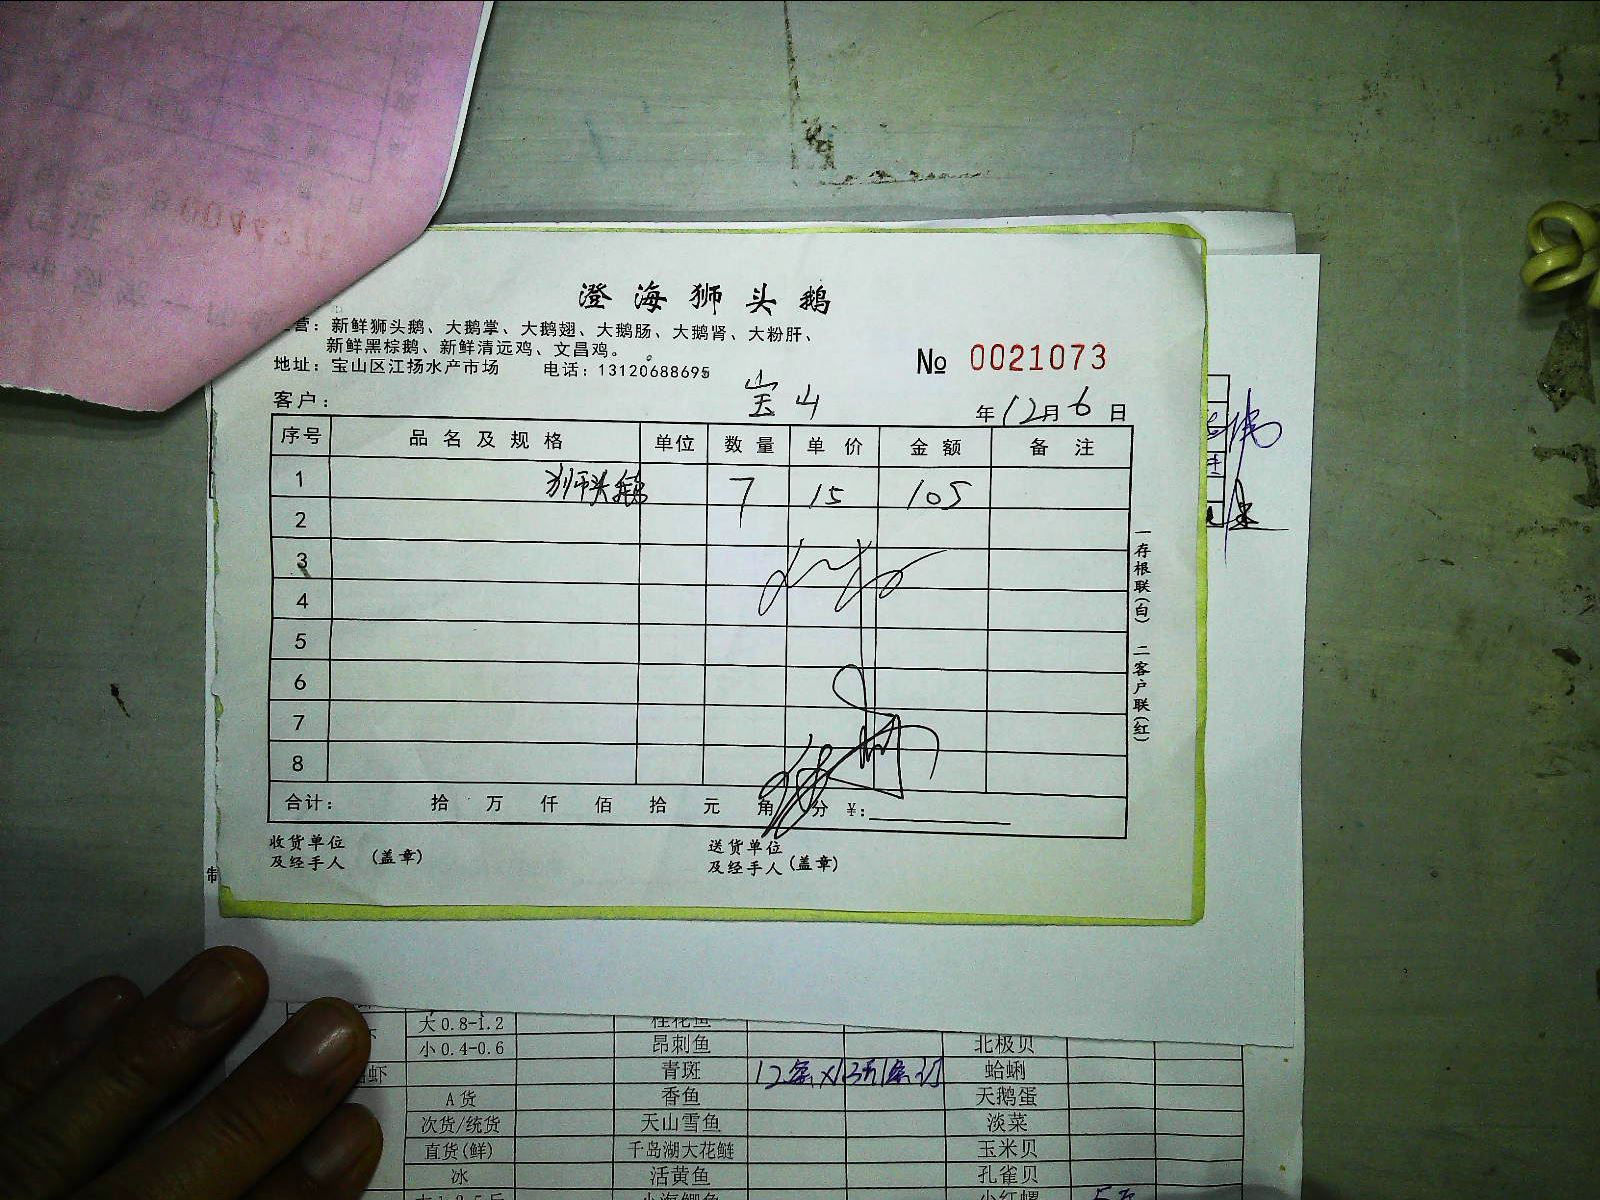 澄海狮头鹅
营：新鲜狮头鹅、大鹅掌、大鹅翅、大鹅肠、大鹅肾、大粉肝、
新鲜黑棕鹅、新鲜清远鸡、文昌鸡。
地址：宝山区江扬水产市场 电话：13120688695
№ 0021073
客户： 宝山 年12月6日
序号 品名及规格 单位 数量 单价 金额 备注
1 狮头鹅 7 15 105
2
3
4
5
6
7
8
合计： 拾 万 仟 佰 拾 元 角 分 ¥:
收货单位
及经手人 (盖章)
送货单位
及经手人 (盖章)
一存根联(白) 二客户联(红)
制
大0.8-1.2 桂花鱼
小0.4-0.6 昂刺鱼 北极贝
虾 青斑 蛤蜊
A货 香鱼 天鹅蛋
次货/统货 天山雪鱼 淡菜
直货(鲜) 千岛湖大花鲢 玉米贝
冰 活黄鱼 孔雀贝
小海鲫鱼 小红螺